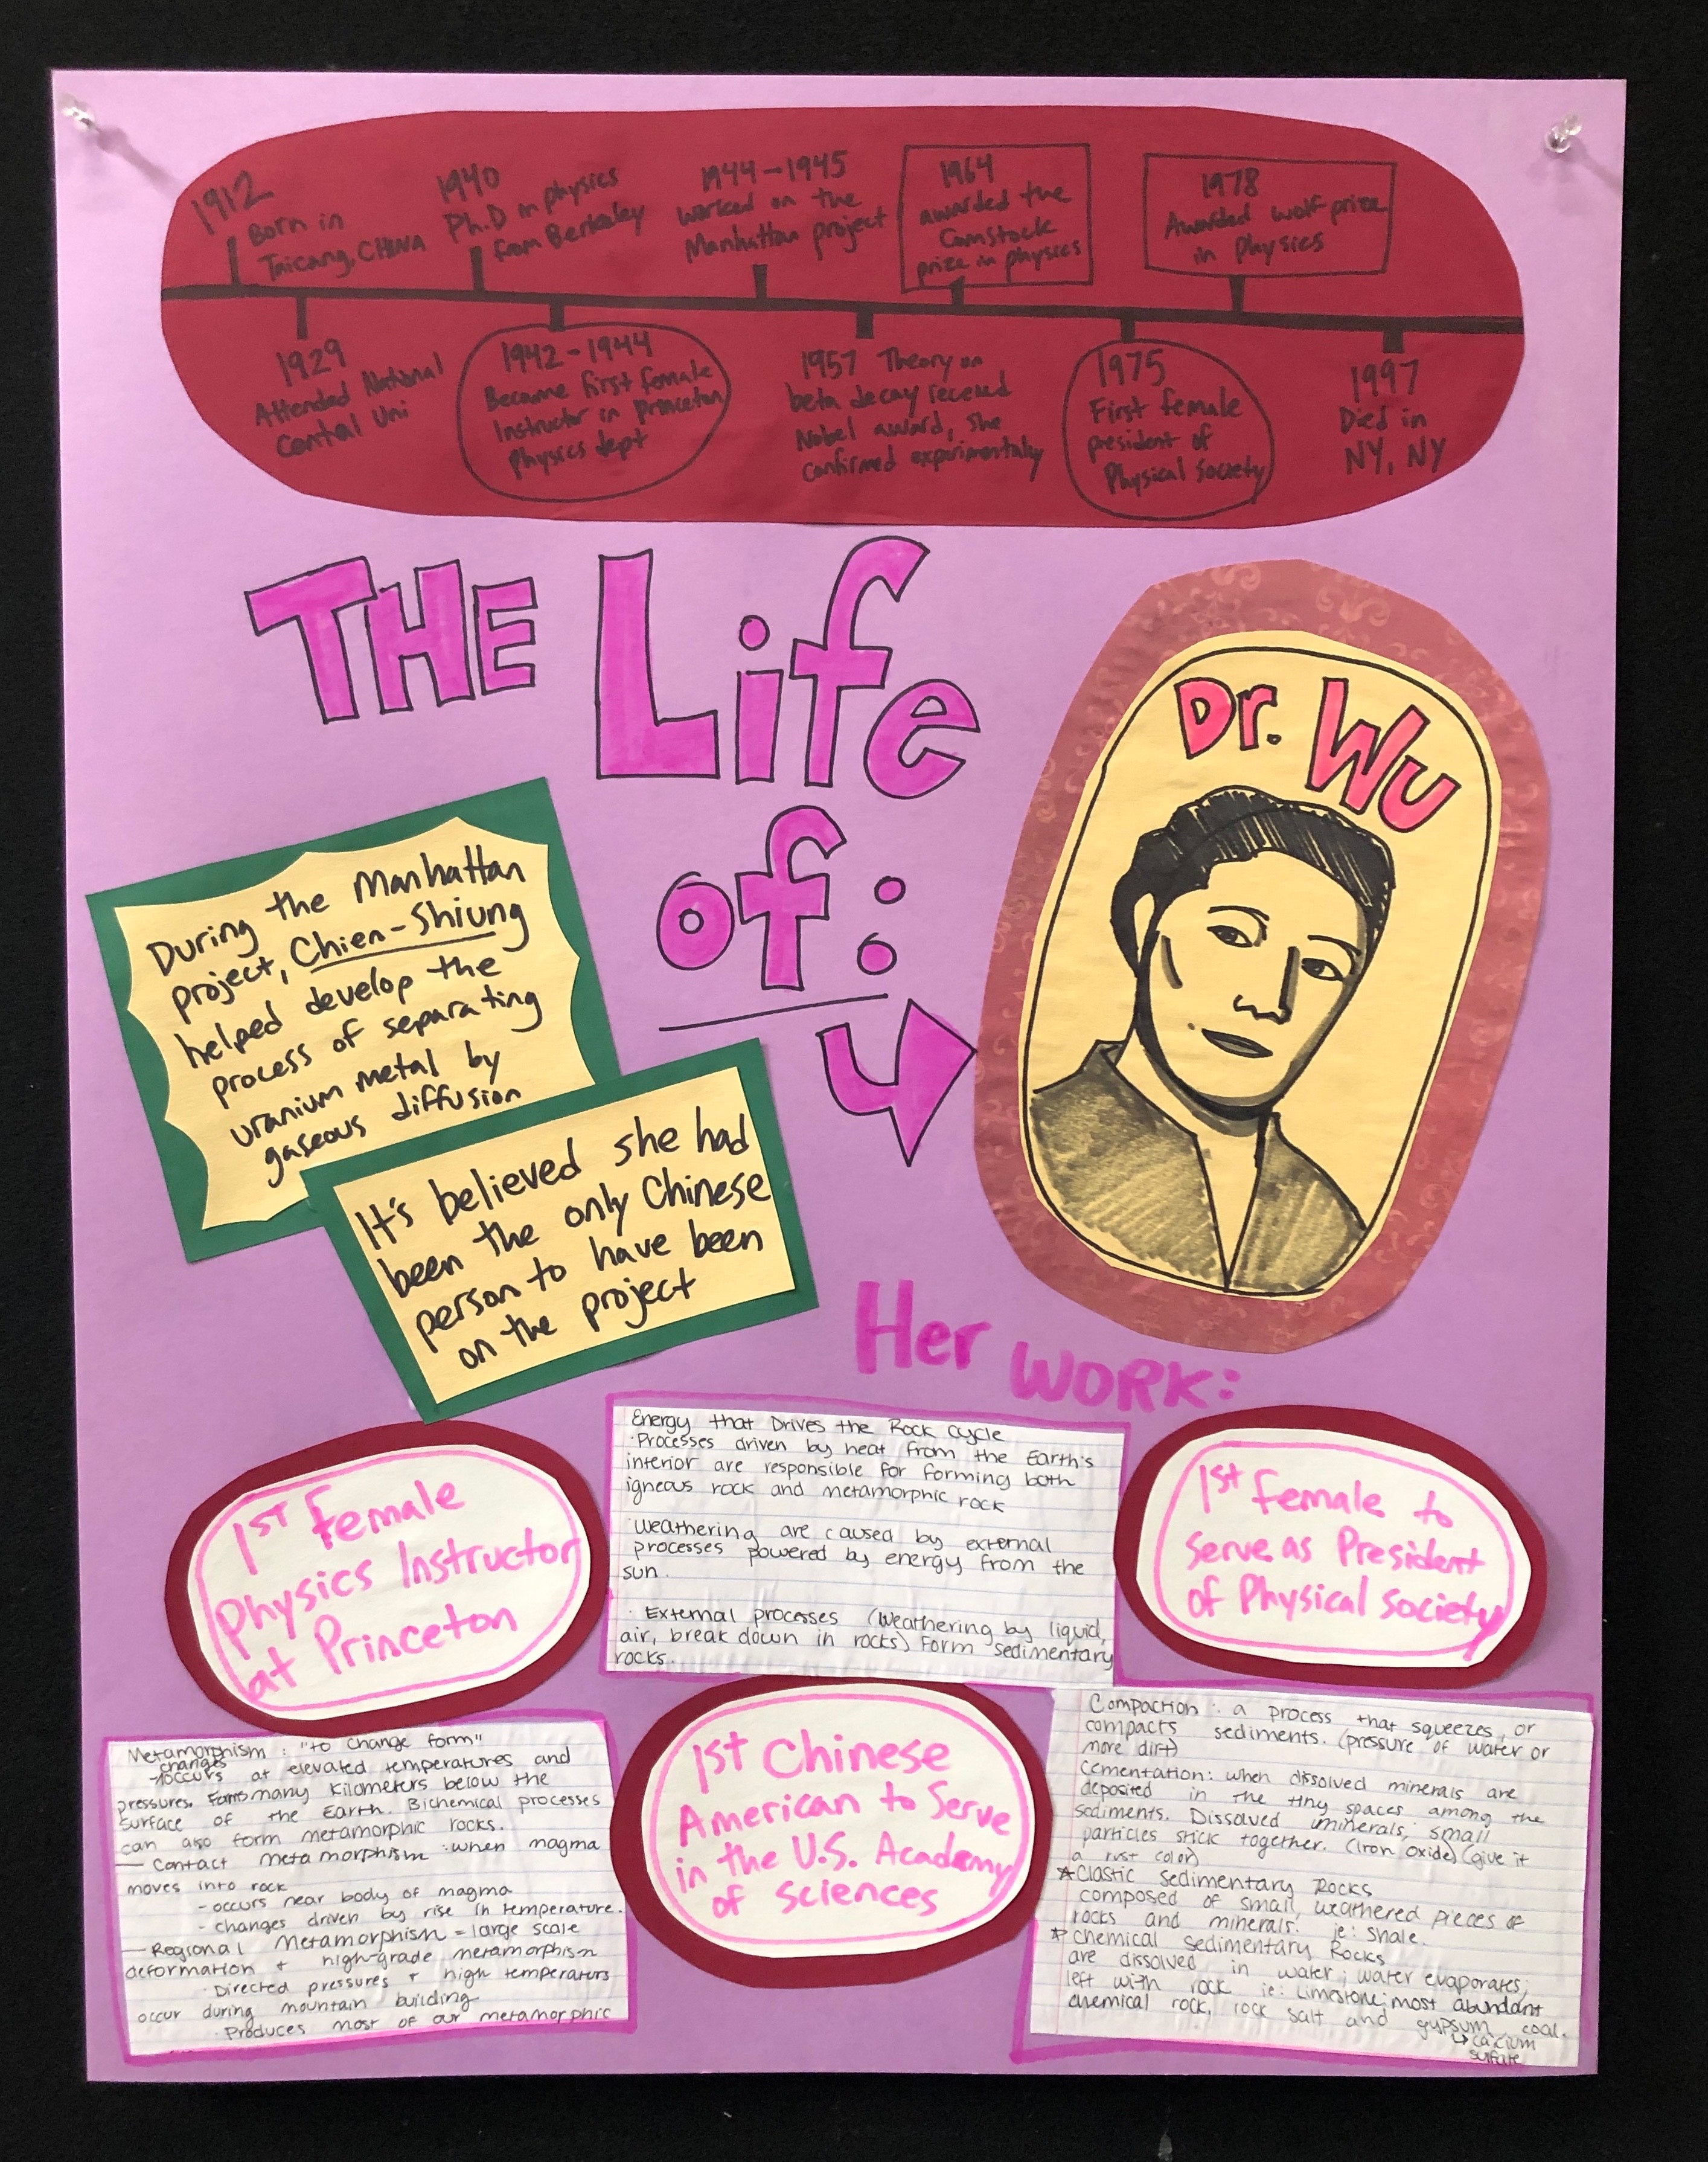 1912
Born in
Taicang, CHINA
1940
Ph.D in physics
from Berkeley
1944-1945
worked on the
Manhattan project
1964
awarded the
Comstock
prize in physics
1978
Awarded wolf prize
in Physics
1929
Attended National
Central Uni
1942-1944
Became first female
Instructor in Princeton
Physics dept
1957 Theory on
beta decay received
Nobel award, she
confirmed experimentally
1975
First female
president of
Physical Society
1997
Died in
NY, NY
THE Life
of:
Dr. Wu
During the Manhattan
project, Chien-Shiung
helped develop the
process of separating
uranium metal by
gaseous diffusion
It's believed she had
been the only Chinese
person to have been
on the project
Her WORK:
1st Female
Physics Instructor
at Princeton
Energy that Drives the Rock cycle
·Processes driven by heat from the Earth's
interior are responsible for forming both
igneous rock and metamorphic rock
·Weathering are caused by external
processes powered by energy from the
sun.
· External processes (weathering by liquid,
air, break down in rocks) form sedimentary
rocks.
1st Female to
serve as President
of Physical Society
Metamorphism : "to change form"
changes
-occurs at elevated temperatures and
pressures. many kilometers below the
surface of the Earth. Bichemical processes
can also form metamorphic rocks.
— Contact metamorphism : when magma
moves into rock
- occurs near body of magma
- changes driven by rise in temperature.
— Regional Metamorphism = large scale
deformation + high-grade metamorphism
· Directed pressures + high temperatures
occur during mountain building
· Produces most of our metamorphic
1st Chinese
American to Serve
in the U.S. Academy
of Sciences
Compaction : a process that squeezes, or
compacts sediments. (pressure of water or
more dirt)
Cementation: when dissolved minerals are
deposited in the tiny spaces among the
sediments. Dissolved minerals; small
particles stick together. (Iron oxide) (give it
a rust color)
*Clastic Sedimentary Rocks
composed of small, weathered pieces of
rocks and minerals. ie: Shale.
* Chemical Sedimentary Rocks
are dissolved in water; water evaporates;
left with rock ie: Limestone; most abundant
chemical rock, rock salt and gypsum, coal.
↳ calcium
sulfate